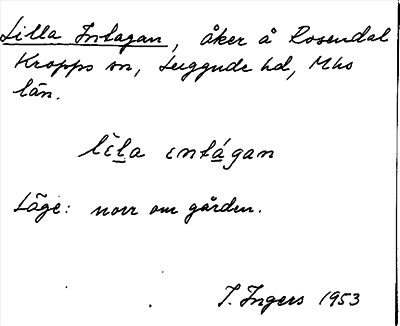 Lilla Intagan, åker å Rosendal
Kropps sn, Luggude hd, Mhs
län.
lìla intágan
Läge: norr om gården.
I. Ingers 1953